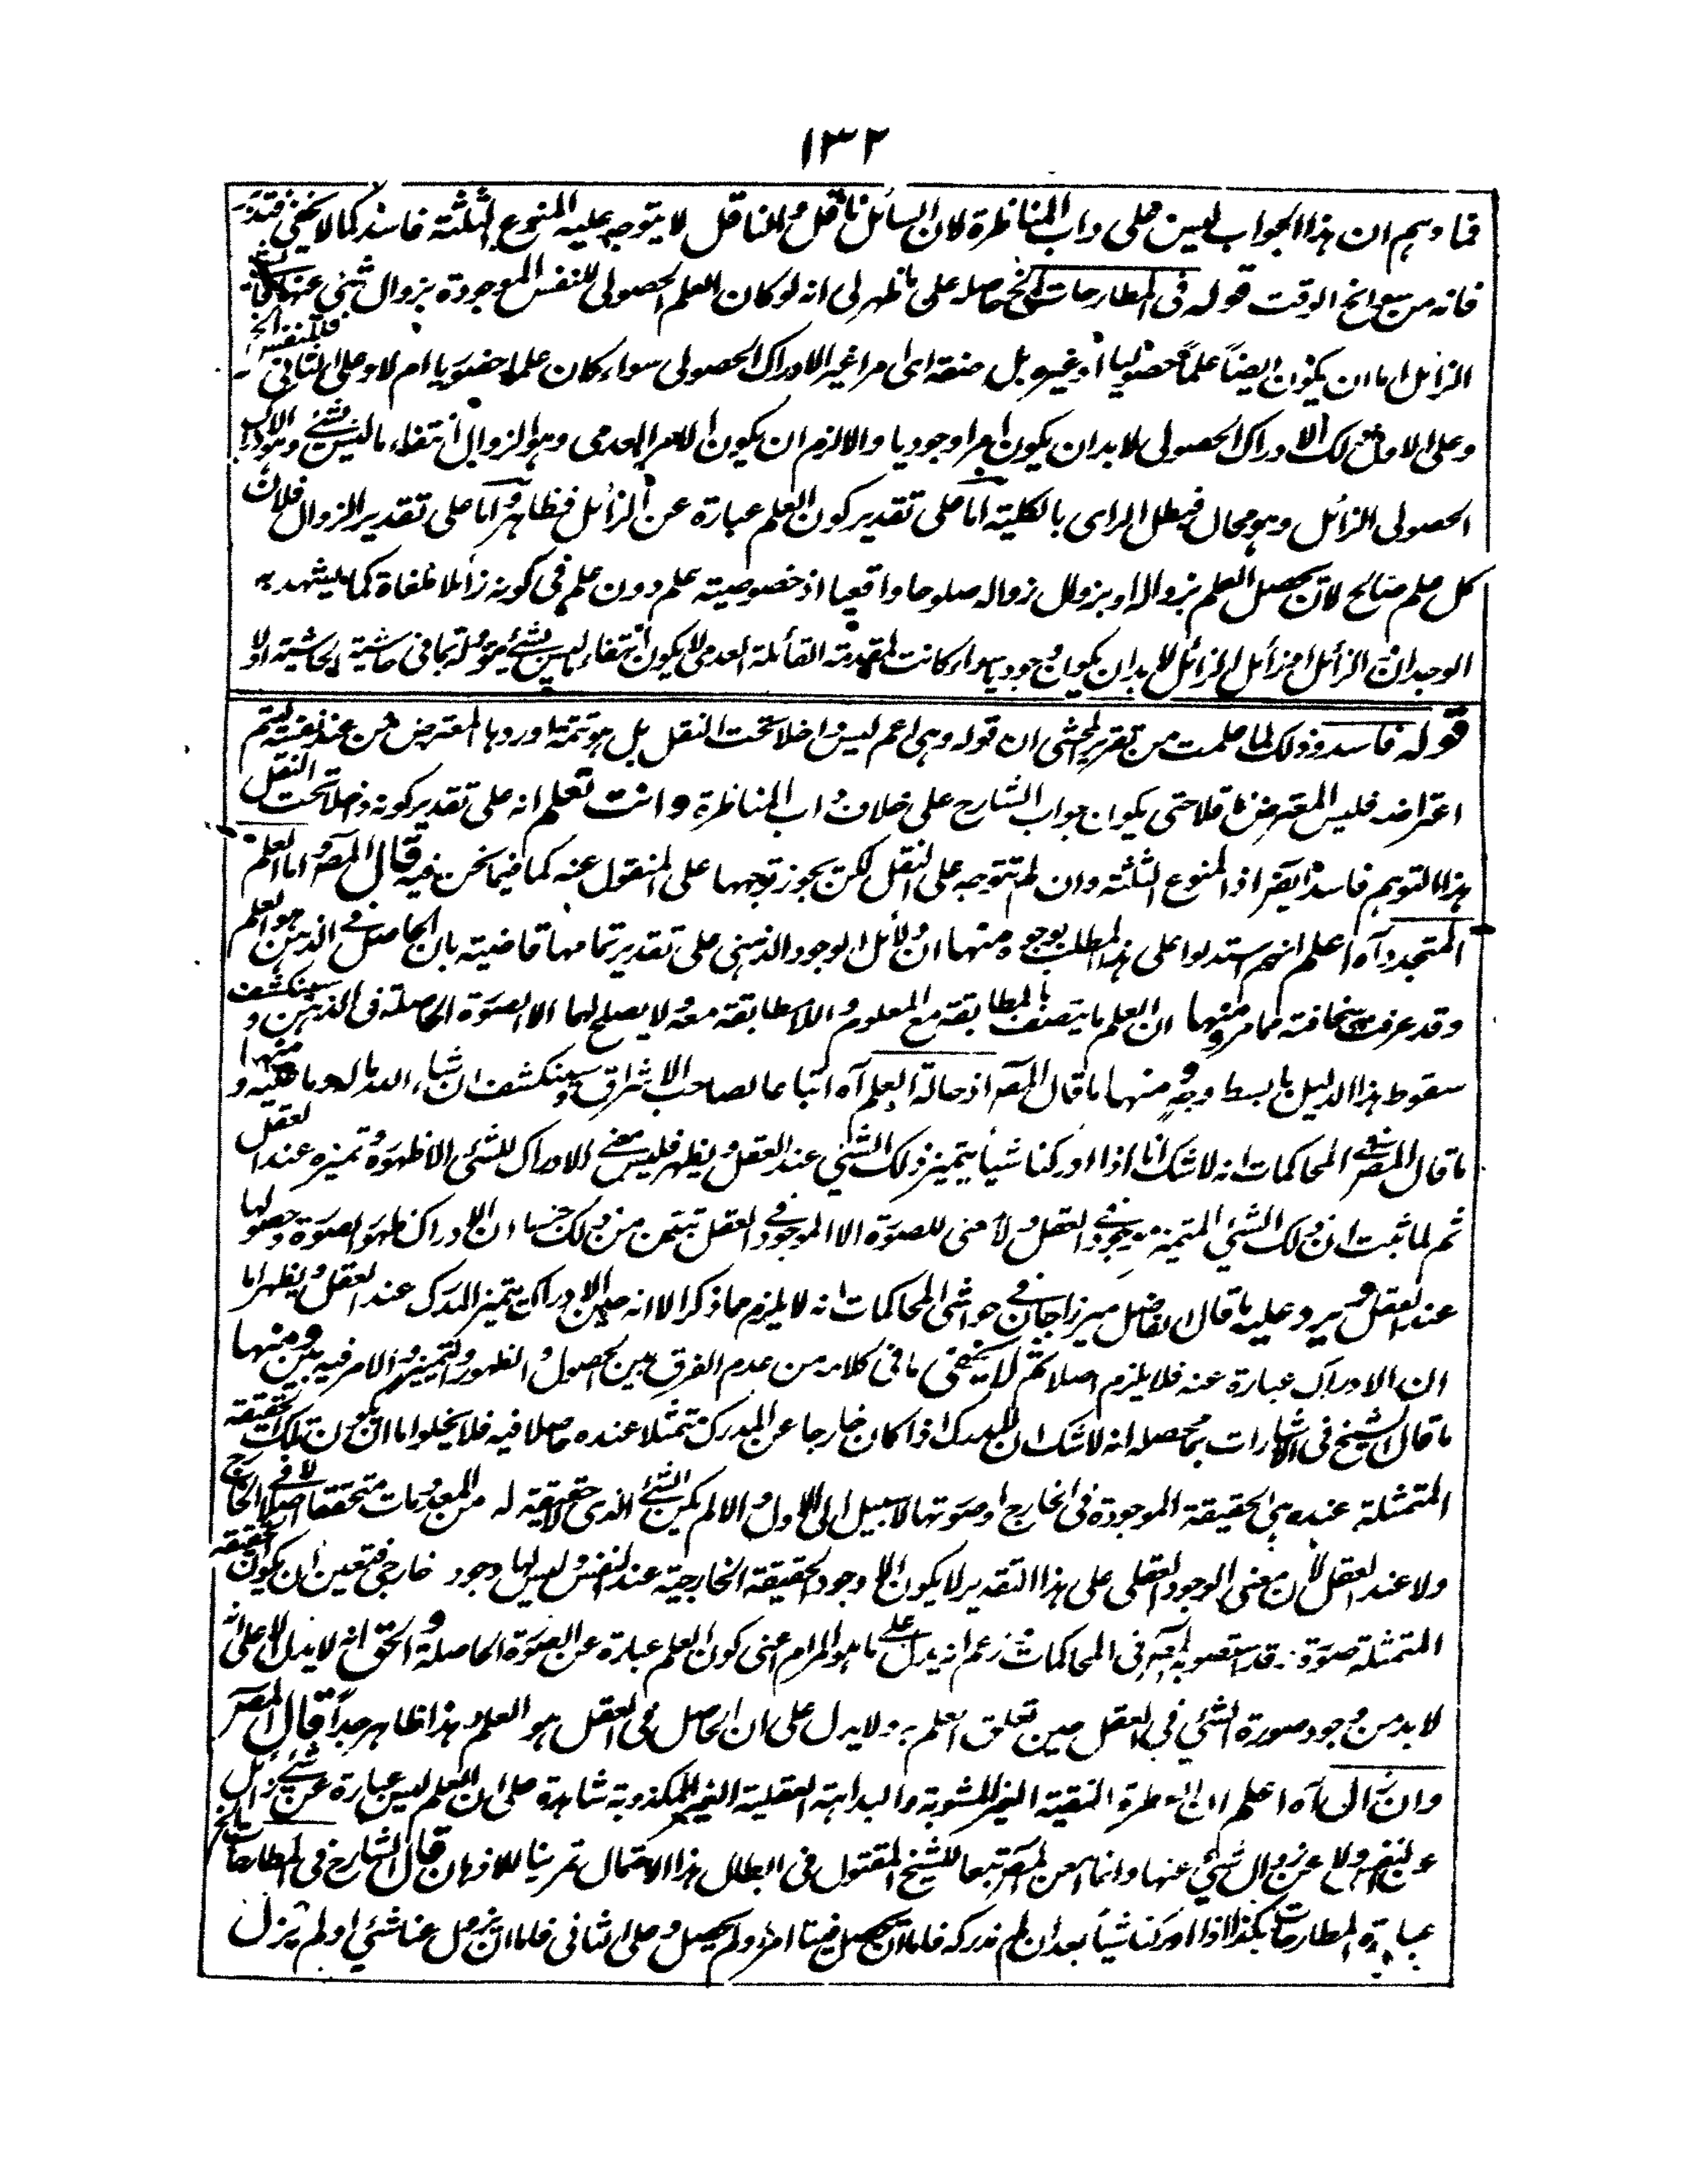 ١٣٢
فما وهم ان هذا الجواب ليس على داب المناظرة لان السائل ناقل والناقل لا يتوجه عليه المنوع الثلثة فاسد كما لا يخفى فتدبر
فانه من سوانح الوقت قوله فى المطارحات الخ حاصله على ما ظهر لى انه لو كان العلم الحصولى للنفس الموجودة بزوال شئ عنها
الزائل اما ان يكون ايضاً علماً حصوليا او غيره بل صفة اى امرا غير الادراك الحصولى سواء كان علما حضوريا ام لا وعلى الثانى
وعلى الاول فذلك الادراك الحصولى لا بد ان يكون امرا وجوديا والا لزم ان يكون الامر العدمى وهو الزوال انتفاء ما ليس بشئ وهو الادراك
الحصولى الزائل وهو محال فبطل الراى بالكلية اما على تقدير كون العلم عبارة عن الزائل فظاهر واما على تقدير الزوال فلان
كل علم صالح لان يحصل العلم بزواله او بزوال زواله صلوحا واقعيا اذ خصوصية علم دون علم فى كونه زائلا ملغاة كما يشهد به
الوجدان الزائل او زائل الزائل لا بد ان يكون وجوديا سواء كانت المقدمة القائلة العدمى لا يكون انتفاء ليس بشئ بما فى حاشية الحاشية
قوله فاسد وذلك لما علمت من تقرير المحشى ان قوله وهى اعم ليس داخلا تحت النقل بل هو تتمة اوردها المعترض من عند نفسه ليتم
اعتراضه فليس المعترض ناقلا حتى يكون جواب الشارح على خلاف داب المناظرة وانت تعلم انه على تقدير كونه داخلا تحت النقل
هذا التوهم فاسد ايضاً اذ المنوع الثلثة وان لم تتوجه على النقل لكن يجوز توجهها على المنقول عنه كما فيما نحن فيه قال المصـ واما العلم
المتجدد آه اعلم انهم استدلوا على هذا المطلب بوجوه منها ان دلائل الوجود الذهنى على تقدير تمامها قاضية بان الحاصل فى الذهن هو العلم
وقد عرفت سخافته مما مر ومنها ان العلم ما يتصف بالمطابقة مع المعلوم واللامطابقة معه ولا يصلح لهما الا الصورة الحاصلة فى الذهن وسينكشف
سقوط هذا الدليل بابسط وجه ومنها ما قال المصـ اذ حالة العلم آه اتباعا لصاحب الاشراق وسينكشف ان شاء الله ما له وما عليه ومنها
ما قال المصـ فى المحاكمات انه لا شك انا اذا ادركنا شيأ يتميز ذلك الشئ عند العقل ويظهر فليس معنى الادراك للشئ الا ظهوره وتميزه عند العقل
ثم لما ثبت ان ذلك الشئ المتميز موجود فى العقل ولا معنى للصورة الا الموجود فى العقل تبين من ذلك ان الادراك ظهور الصورة وحصولها
عند العقل ويرد عليه ما قال الفاضل ميرزا جان فى حواشى المحاكمات انه لا يلزم مما ذكر الا انه حين الادراك يتميز المدرك عند العقل ويظهر اما
ان الادراك عبارة عنه فلا يلزم اصلا ثم لا يخفى ما فى كلامه من عدم الفرق بين الحصول والظهور والتميز والامر فيه هين ومنها
ما قال الشيخ فى الاشارات محصله انه لا شك ان المدرك اذا كان خارجا عن المدرك متمثلا عنده حاصلا فيه فلا يخلو اما ان يكون تلك الحقيقة
المتمثلة عنده هى الحقيقة الموجودة فى الخارج او صورتها لا سبيل الى الاول والا لم يكن الشئ الذى لا حقيقة له من المعدومات متحققا اصلا لا فى الخارج
ولا عند العقل لان معنى الوجود العقلى على هذا التقدير لا يكون الا وجود الحقيقة الخارجية عند النفس وليس لها وجود خارجى فتعين ان يكون الحقيقة
المتمثلة صورة قد استصوبه المصـ فى المحاكمات زعم انه يدل على ما هو المرام اعنى كون العلم عبارة عن الصورة الحاصلة والحق انه لا يدل الا على انه
لا بد من وجود صورة الشئ فى العقل حين تعلق العلم به ولا يدل على ان الحاصل فى العقل هو العلم وهذا ظاهر جداً قال المصـ
وان الى آه اعلم ان الفطرة النقية الغير المشوبة والبداهة العقلية الغير المكذوبة شاهدة على ان العلم ليس عبارة عن شئ زائل
عن النفس ولا عن زوال شئ عنها وانما امعن المصـ تبعا للشيخ المقتول فى ابطال هذا الاحتمال تمرينا للاذهان قال الشارح فى المطارحات الخ
عبارة المطارحات هكذا اذا ادركنا شيأ بعد ان لم ندركه فاما ان يحصل فينا امر او لم يحصل وعلى الثانى فاما ان زال عنا شئ او لم يزل